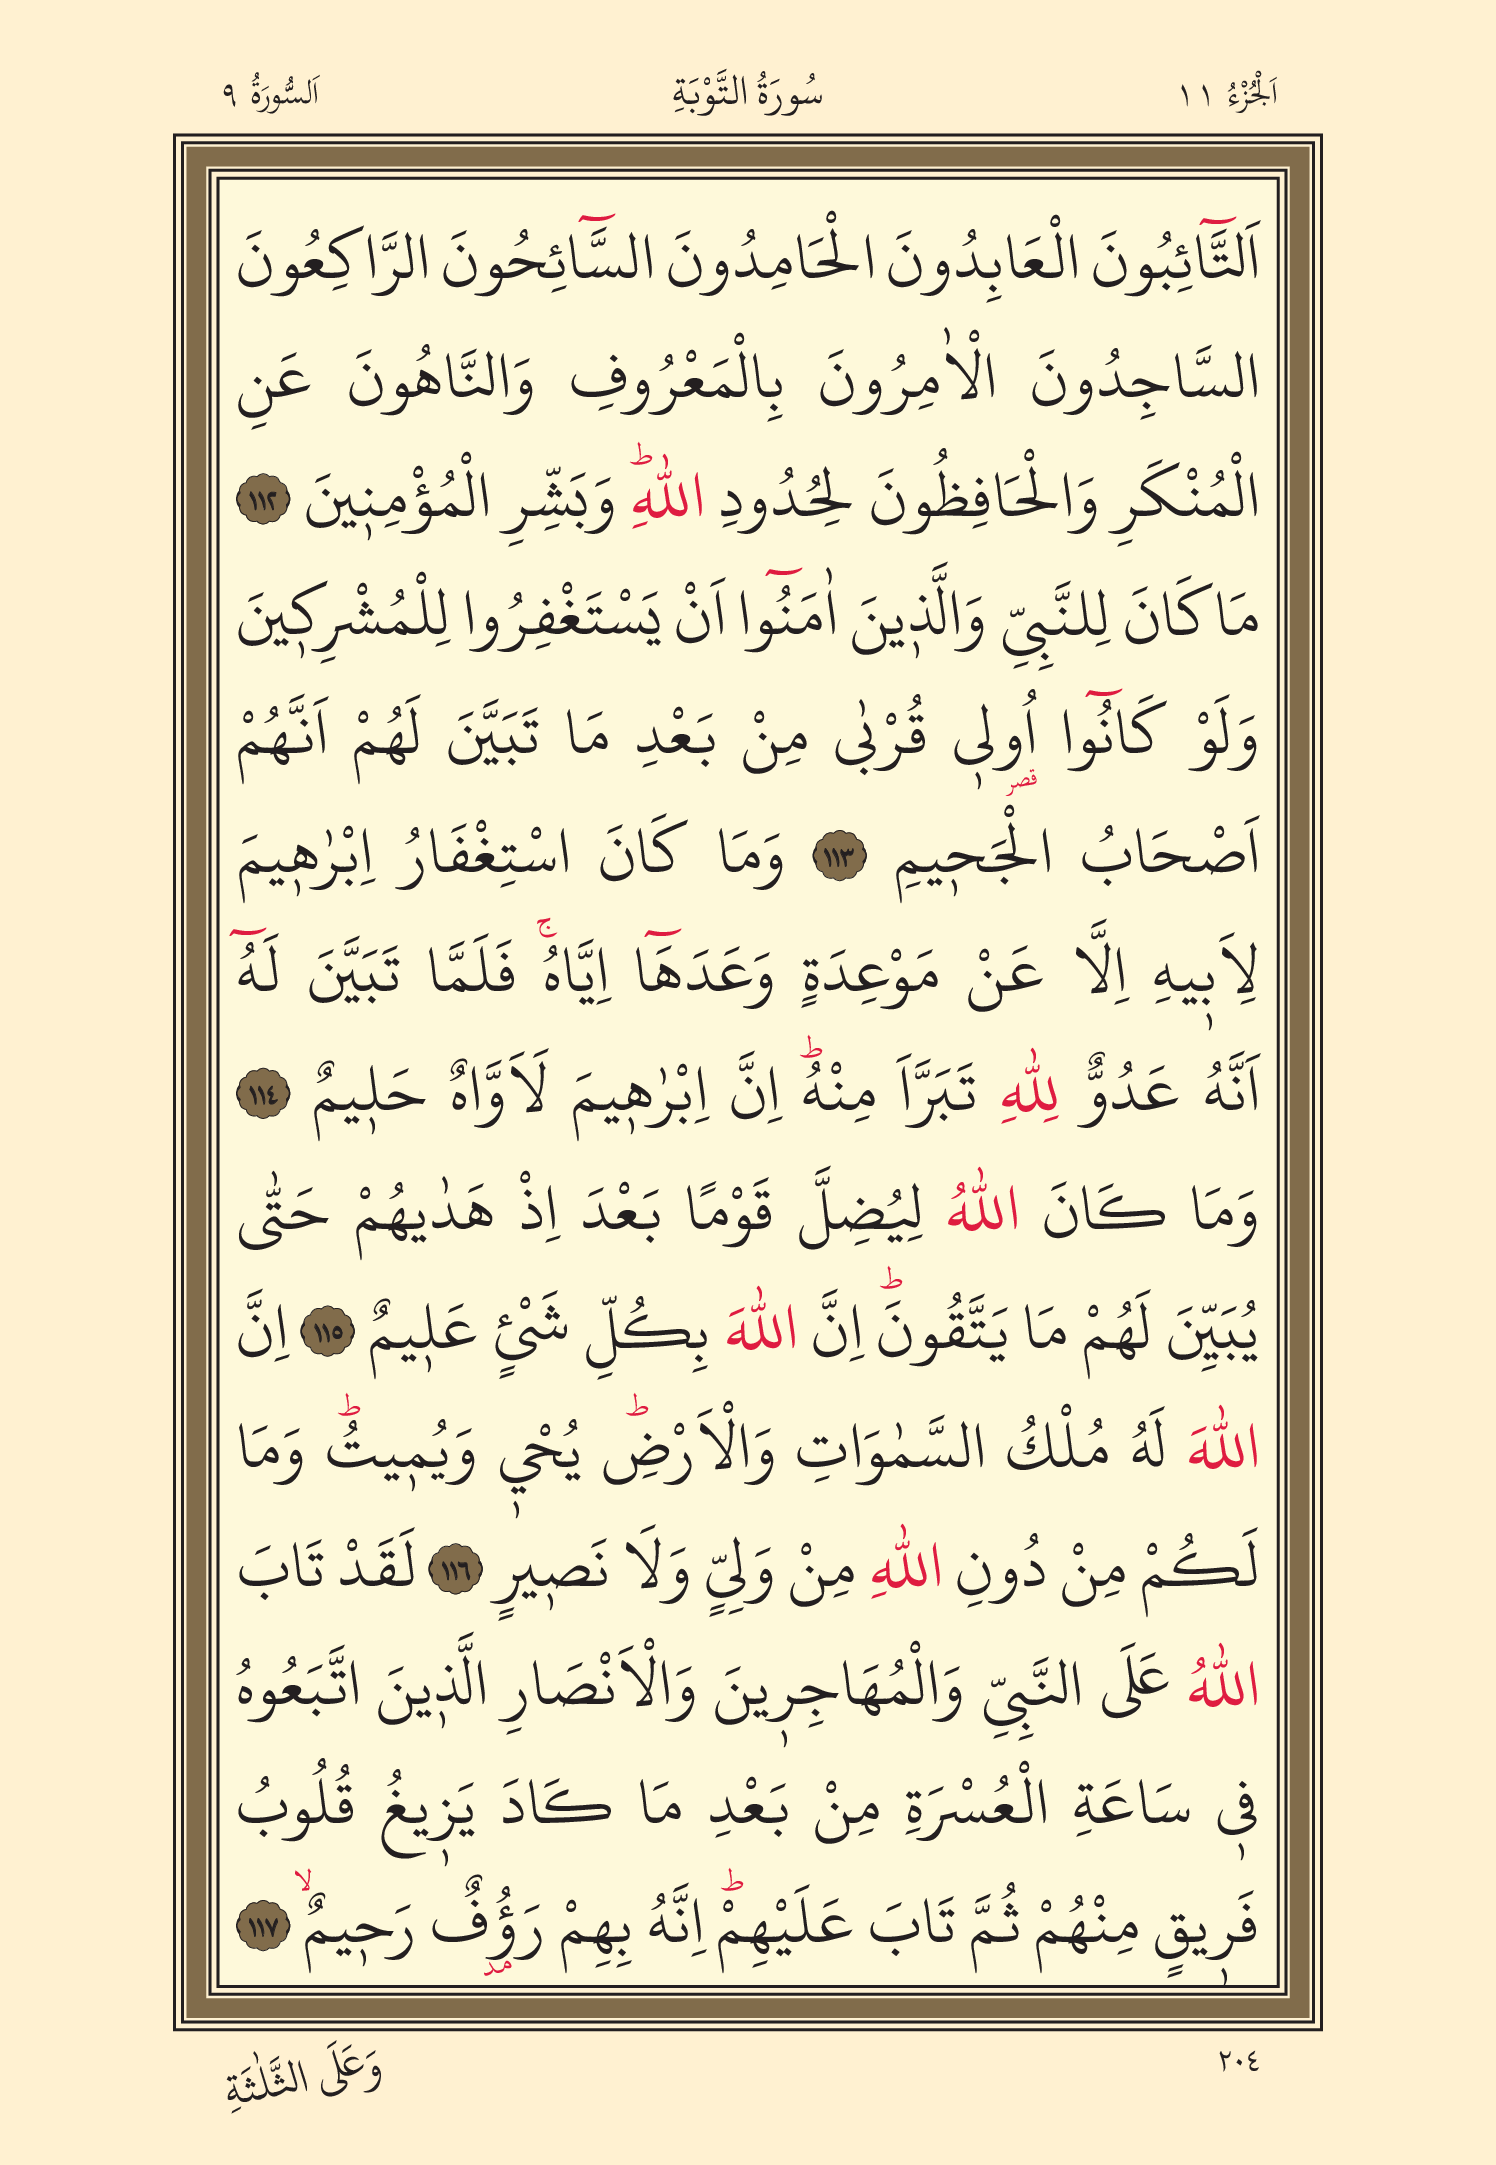 اَلْجُزْءُ ١١
سُورَةُ التَّوْبَةِ
اَلسُّورَةُ ٩
اَلتَّٓائِبُونَ الْعَابِدُونَ الْحَامِدُونَ السَّٓائِحُونَ الرَّاكِعُونَ
السَّاجِدُونَ الْاٰمِرُونَ بِالْمَعْرُوفِ وَالنَّاهُونَ عَنِ
الْمُنْكَرِ وَالْحَافِظُونَ لِحُدُودِ اللّٰهِؕ وَبَشِّرِ الْمُؤْمِنٖينَ ﴿١١٢﴾
مَاكَانَ لِلنَّبِيِّ وَالَّذٖينَ اٰمَنُٓوا اَنْ يَسْتَغْفِرُوا لِلْمُشْرِكٖينَ
وَلَوْ كَانُٓوا اُولٖى قُرْبٰى مِنْ بَعْدِ مَا تَبَيَّنَ لَهُمْ اَنَّهُمْ
قصر
اَصْحَابُ الْجَحٖيمِ ﴿١١٣﴾ وَمَا كَانَ اسْتِغْفَارُ اِبْرٰهٖيمَ
لِاَبٖيهِ اِلَّا عَنْ مَوْعِدَةٍ وَعَدَهَٓا اِيَّاهُۚ فَلَمَّا تَبَيَّنَ لَهُٓ
اَنَّهُ عَدُوٌّ لِلّٰهِ تَبَرَّاَ مِنْهُؕ اِنَّ اِبْرٰهٖيمَ لَاَوَّاهٌ حَلٖيمٌ ﴿١١٤﴾
وَمَا كَانَ اللّٰهُ لِيُضِلَّ قَوْمًا بَعْدَ اِذْ هَدٰيهُمْ حَتّٰى
يُبَيِّنَ لَهُمْ مَا يَتَّقُونَؕ اِنَّ اللّٰهَ بِكُلِّ شَيْئٍ عَلٖيمٌ ﴿١١٥﴾ اِنَّ
اللّٰهَ لَهُ مُلْكُ السَّمٰوَاتِ وَالْاَرْضِؕ يُحْيٖ وَيُمٖيتُؕ وَمَا
لَكُمْ مِنْ دُونِ اللّٰهِ مِنْ وَلِيٍّ وَلَا نَصٖيرٍ ﴿١١٦﴾ لَقَدْ تَابَ
اللّٰهُ عَلَى النَّبِيِّ وَالْمُهَاجِرٖينَ وَالْاَنْصَارِ الَّذٖينَ اتَّبَعُوهُ
فٖى سَاعَةِ الْعُسْرَةِ مِنْ بَعْدِ مَا كَادَ يَزٖيغُ قُلُوبُ
فَرٖيقٍ مِنْهُمْ ثُمَّ تَابَ عَلَيْهِمْؕ اِنَّهُ بِهِمْ رَؤُفٌ رَحٖيمٌۙ ﴿١١٧﴾
مد
٢٠٤
وَعَلَى الثَّلٰثَةِ